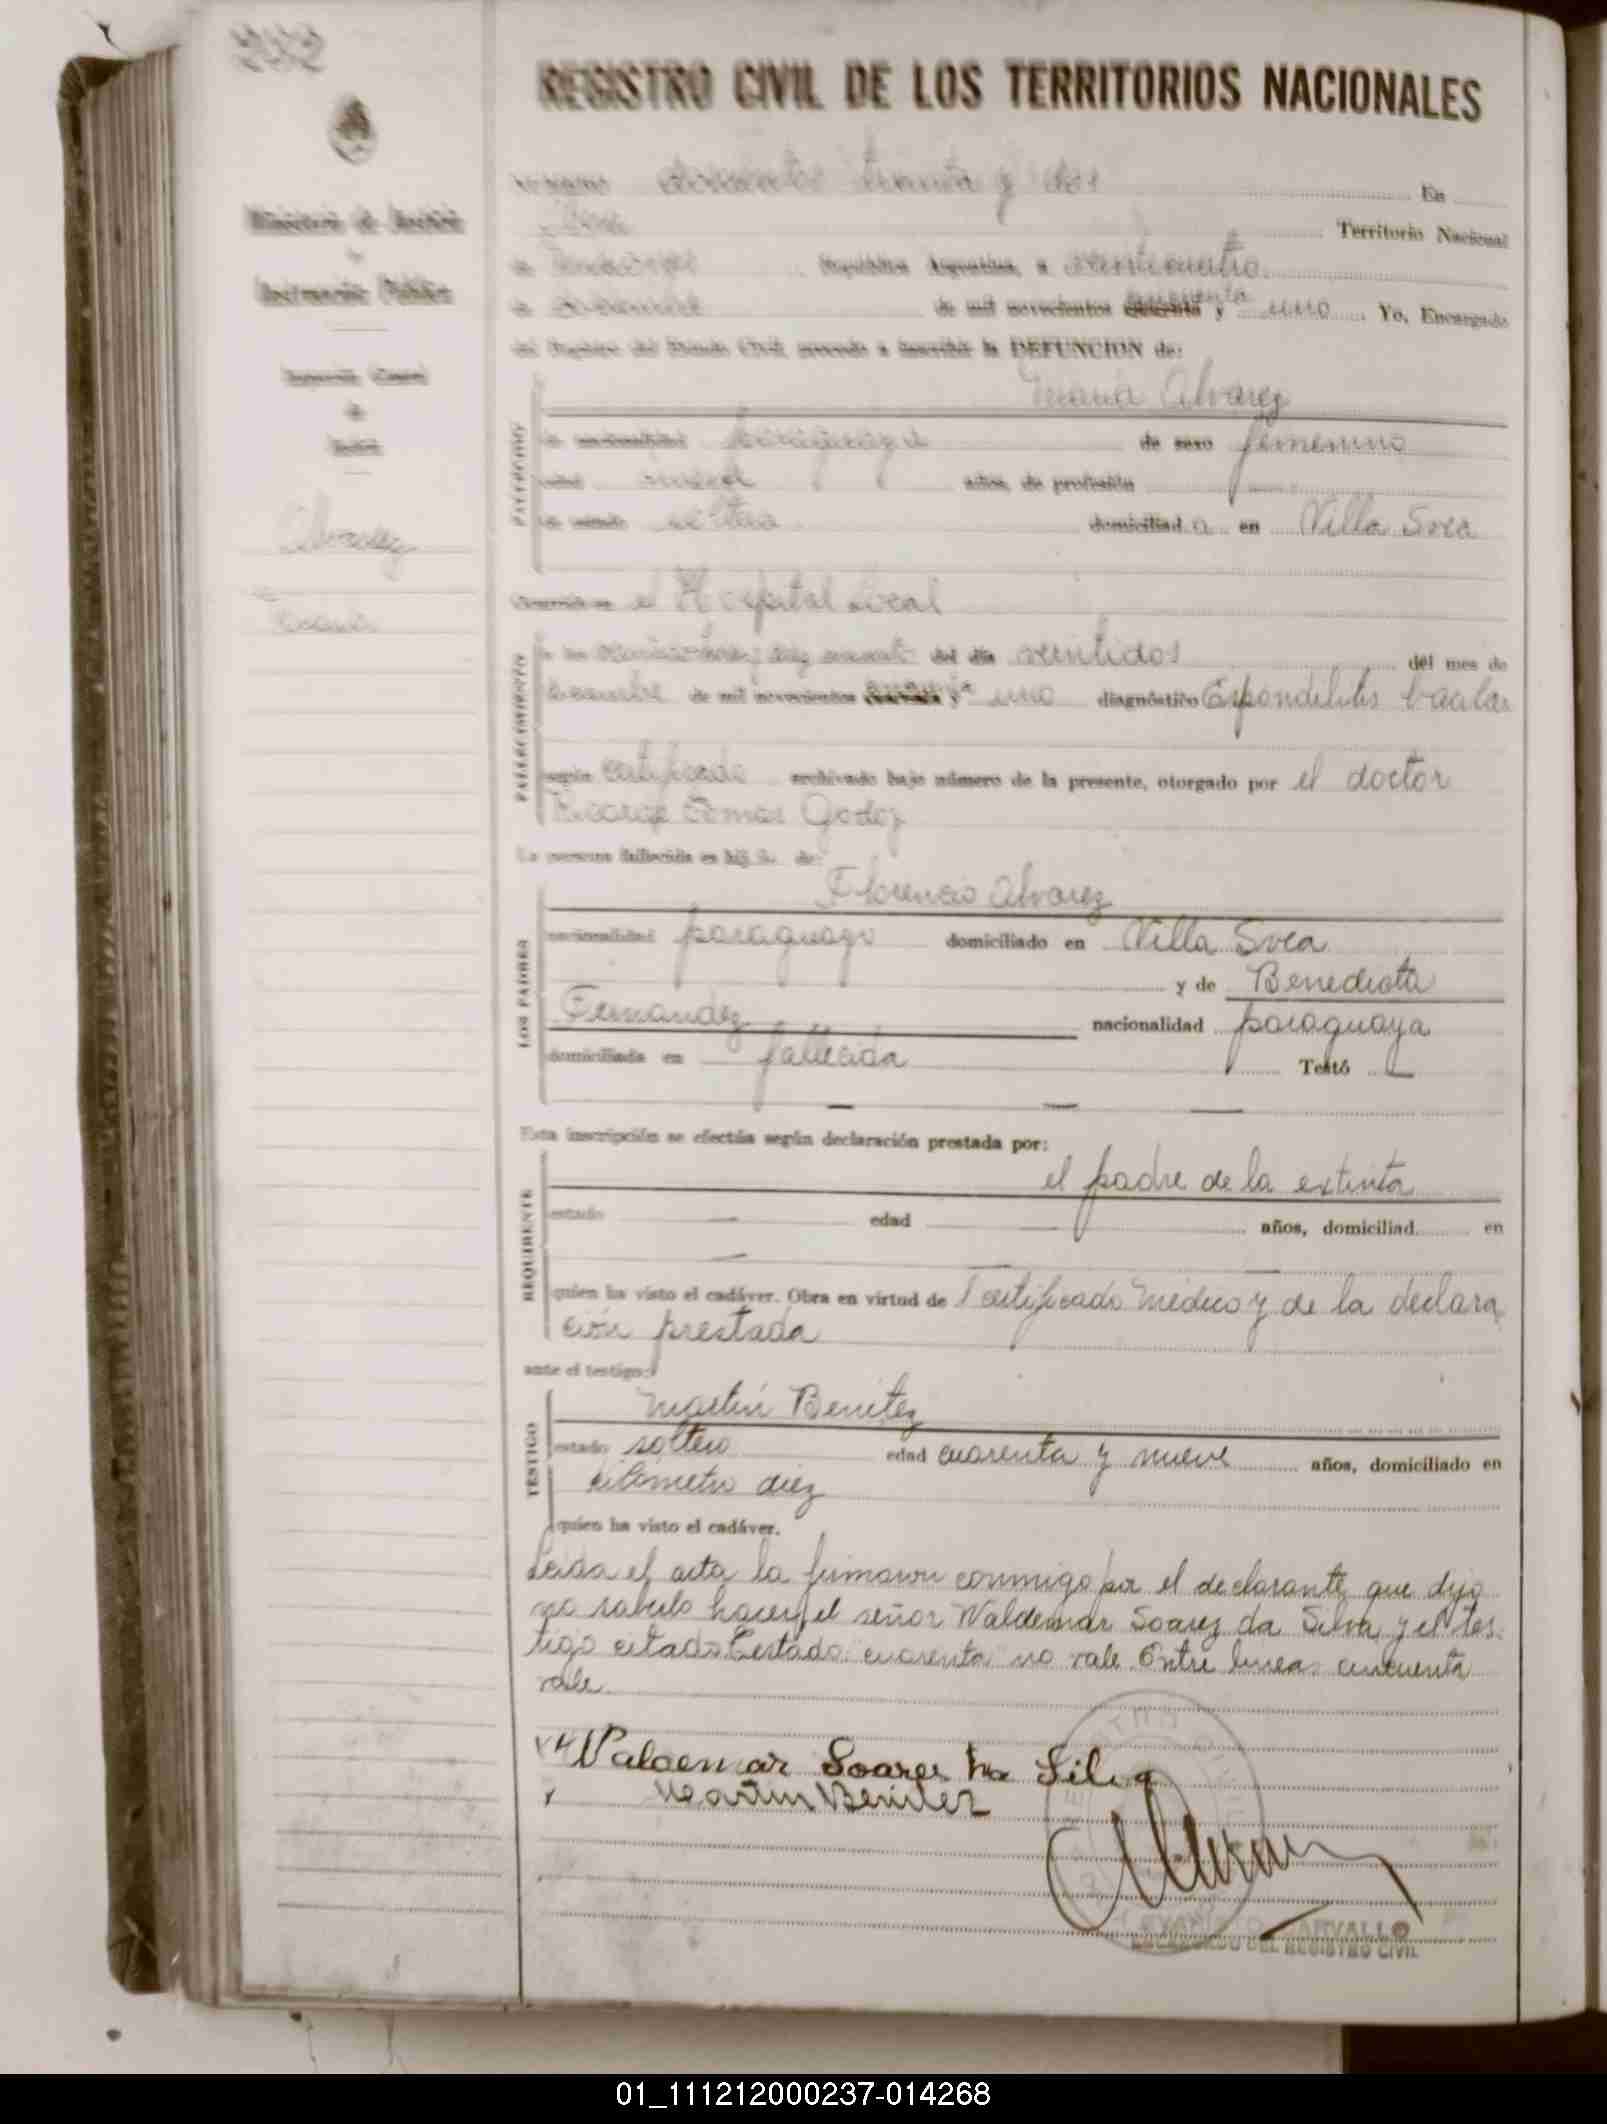 232
REGISTRO CIVIL DE LOS TERRITORIOS NACIONALES
Número doscientos treinta y dos En
Oberá Territorio Nacional
Ministerio de Justicia
e
Instrucción Pública
de Misiones República Argentina, a veinticuatro
de diciembre de mil novecientos cuarenta cincuenta y uno Yo, Encargado
del Registro del Estado Civil, procedo a inscribir la DEFUNCION de:
Inspección General
de
Justicia
Maria Alvarez
de nacionalidad paraguaya de sexo femenino
años, de profesión
de estado soltera domiciliada en Villa Svea
Alvarez
Maria
Ocurrida en el Hospital Local
FALLECIMIENTO
diez minutos del día veintidos del mes de
diciembre de mil novecientos cuarenta cincuenta y uno diagnóstico Espondilitis bacilar
según certificado archivado bajo número de la presente, otorgado por el doctor
Godoy
La persona fallecida es hija de:
LOS PADRES
Florencio Alvarez
nacionalidad paraguayo domiciliado en Villa Svea
y de Benedicta
Fernandez nacionalidad paraguaya
domiciliada en fallecida Testó
Esta inscripción se efectúa según declaración prestada por:
REQUIRENTE
el padre de la extinta
estado — edad — años, domiciliad en
quien ha visto el cadáver. Obra en virtud de certificado Médico y de la declara
ción prestada
ante el testigo:
TESTIGO
Martín Benitez
estado soltero edad cuarenta y nueve años, domiciliado en
kilometro diez
quien ha visto el cadáver.
Leida el acta la firmaron conmigo por el declarante que dijo
no saberlo hacer, el señor Waldemar Soarez da Silva y el tes
tigo citado. Testado: cuarenta no vale. Entre lineas cincuenta
vale.
Waldemar Soares da Silva
Martin Benitez
CARVALLO
ENCARGADO DEL REGISTRO CIVIL
01_111212000237-014268